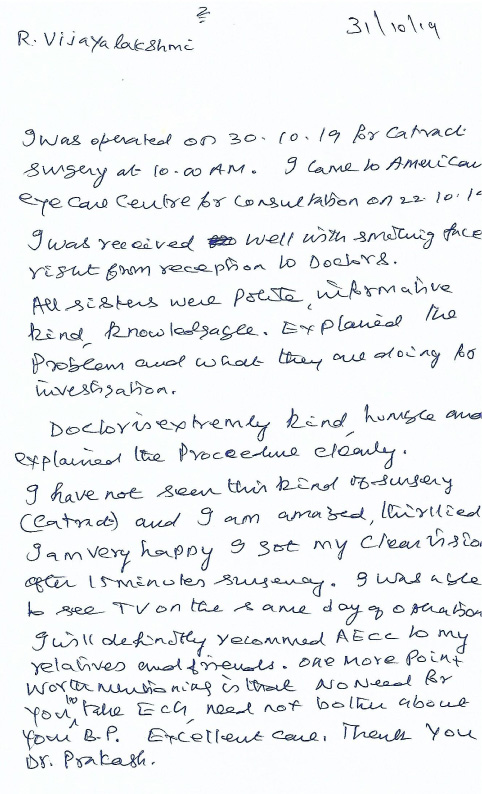 2
31/10/19
R. Vijayalakshmi
I was operated on 30.10.19 for Catract
surgery at 10.00 AM. I came to American
eye care centre for consultation on 22.10.1
I was received well with smiling face
right from reception to Doctors.
All sisters were polite, informative
kind, knowledgagle. Explained the
Problem and what they are doing for
investigation.
Doctor is extremly kind, humgle and
explained the Proceedure clearly.
I have not seen this kind of surgery
(Catract) and I am amazed, thirllied
I am very happy I got my clear visio
after 15 minutes surgery. I was agle
to see TV on the same day of operation
I will defindtly recommed AECC to my
relatives and friends. One more Point
worth mentioning is that No Need for
You to take ECG, need not bother about
Your B.P. Excellent care. Thank You
Dr. Prakash.